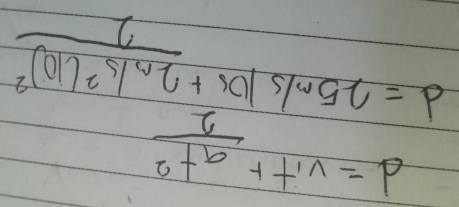 d = vit + at²
2
d = 25m/s 10s + 2m/s²(10)²
2